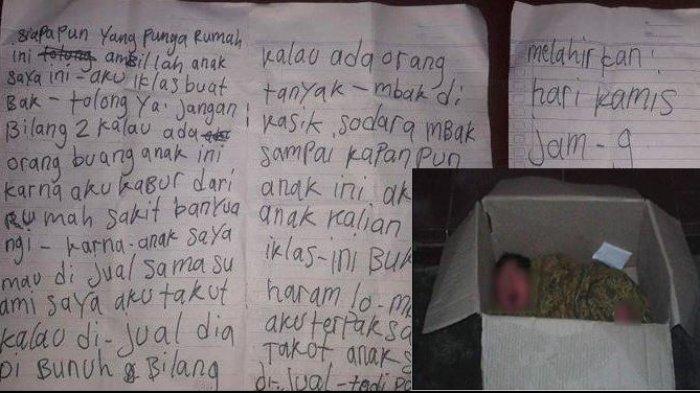 siapapun yang punga rumah
ini ambillah anak
saya ini - aku iklas buat
Bak - tolong ya. jangan
Bilang2 kalau ada
orang buang anak ini
karna aku kabur dari
rumah sakit banyua
ngi - karna-anak saya
mau di jual sama su
ami saya aku takut
kalau di-jual dia
Di Bunuh Bilang
kalau ada orang
tanyak - mbak di
kasik sodara mbak
sampai kapan pun
anak ini ak
anak kalian
iklas-ini Buk
haram lo-m
aku terpaksa
Takot anak s
di-jual-tadi pa
melahirkan:
hari kamis
jam-9